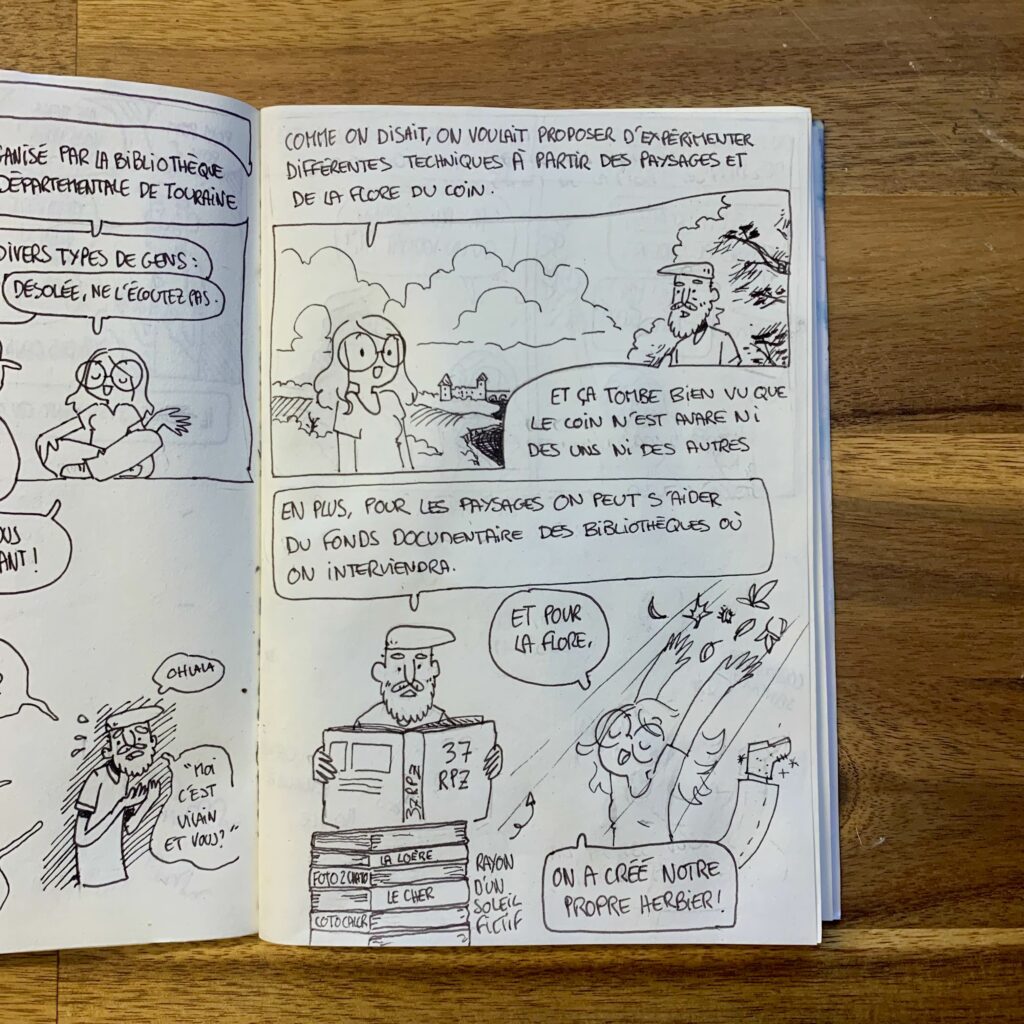 GANISÉ PAR LA BIBLIOTHÈQUE
DÉPARTEMENTALE DE TOURAINE
DIVERS TYPES DE GENS :
DÉSOLÉE, NE L'ÉCOUTEZ PAS.
ANT !
OHLALA
"MOI
C'EST
VILAIN
ET VOUS?"
COMME ON DISAIT, ON VOULAIT PROPOSER D'EXPÉRIMENTER
DIFFÉRENTES TECHNIQUES À PARTIR DES PAYSAGES ET
DE LA FLORE DU COIN.
ET ÇA TOMBE BIEN VU QUE
LE COIN N'EST AVARE NI
DES UNS NI DES AUTRES
EN PLUS, POUR LES PAYSAGES ON PEUT S'AIDER
DU FONDS DOCUMENTAIRE DES BIBLIOTHÈQUES OÙ
ON INTERVIENDRA.
ET POUR
LA FLORE,
37
RPZ
37 RPZ
LA LOÈRE
LE CHER
RAYON
D'UN
SOLEIL
FICTIF
ON A CRÉÉ NOTRE
PROPRE HERBIER!